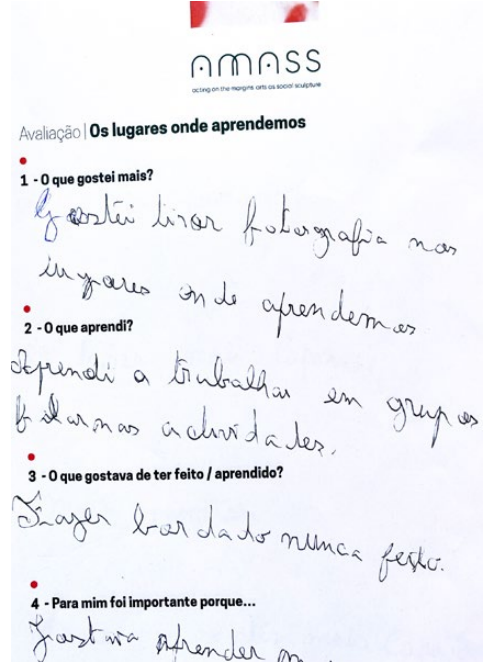 AMASS
acting on the margins arts as social sculpture
Avaliação | Os lugares onde aprendemos
1 - O que gostei mais?
Gostei tirar fotorgrafia nos
lugares onde aprendemos
2 - O que aprendi?
Aprendi a trabalhar em grupos
actividades.
3 - O que gostava de ter feito / aprendido?
Fazer bordado nunca feito.
4 - Para mim foi importante porque...
Gostava aprender